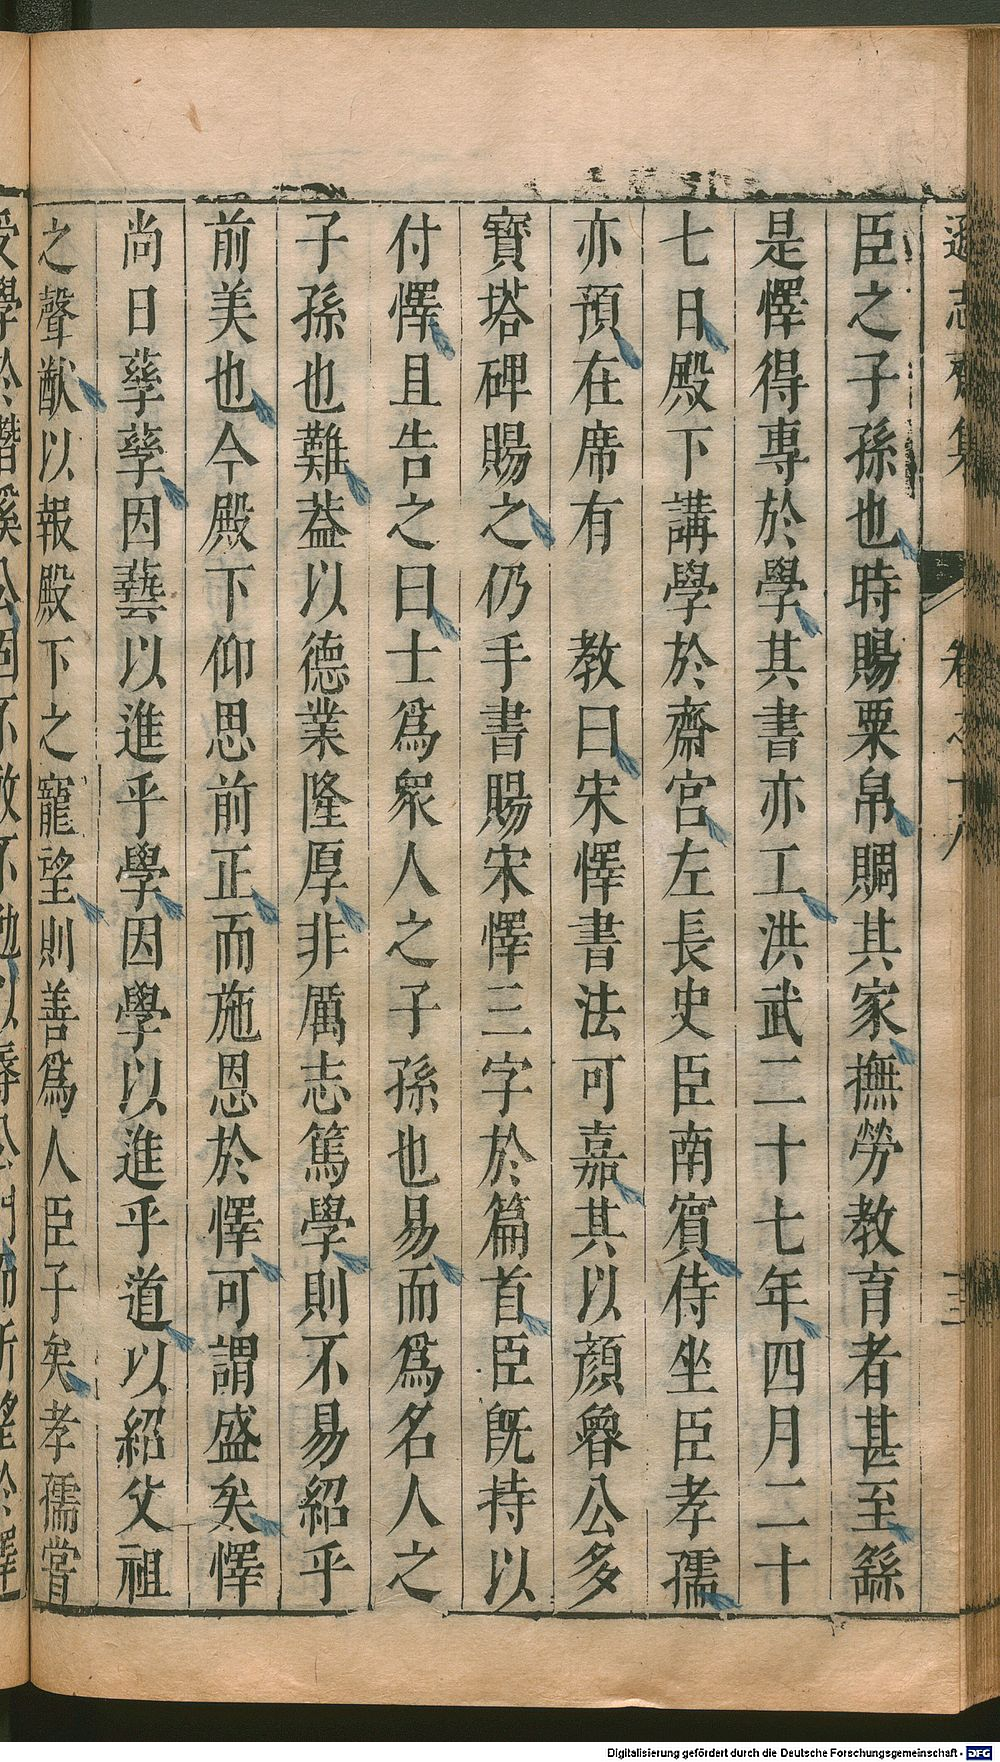 遜志齋集 卷之十八 三
臣之子孫也時賜粟帛賙其家撫勞教育者甚至繇
是懌得專於學其書亦工洪武二十七年四月二十
七日殿下講學於齋宮左長史臣南賓侍坐臣孝孺
亦預在席有 教曰宋懌書法可嘉其以顏魯公多
寶塔碑賜之仍手書賜宋懌三字於篇首臣既持以
付懌且告之曰士為衆人之子孫也易而為名人之
子孫也難葢以德業隆厚非厲志篤學則不易紹乎
前美也今殿下仰思前正而施恩於懌可謂盛矣懌
尚日孳孳因藝以進乎學因學以進乎道以紹父祖
之聲猷以報殿下之寵望則善為人臣子矣孝孺嘗
受學於潛溪公固不敢不勉以辱公門而所望於懌
Digitalisierung gefördert durch die Deutsche Forschungsgemeinschaft - DFG